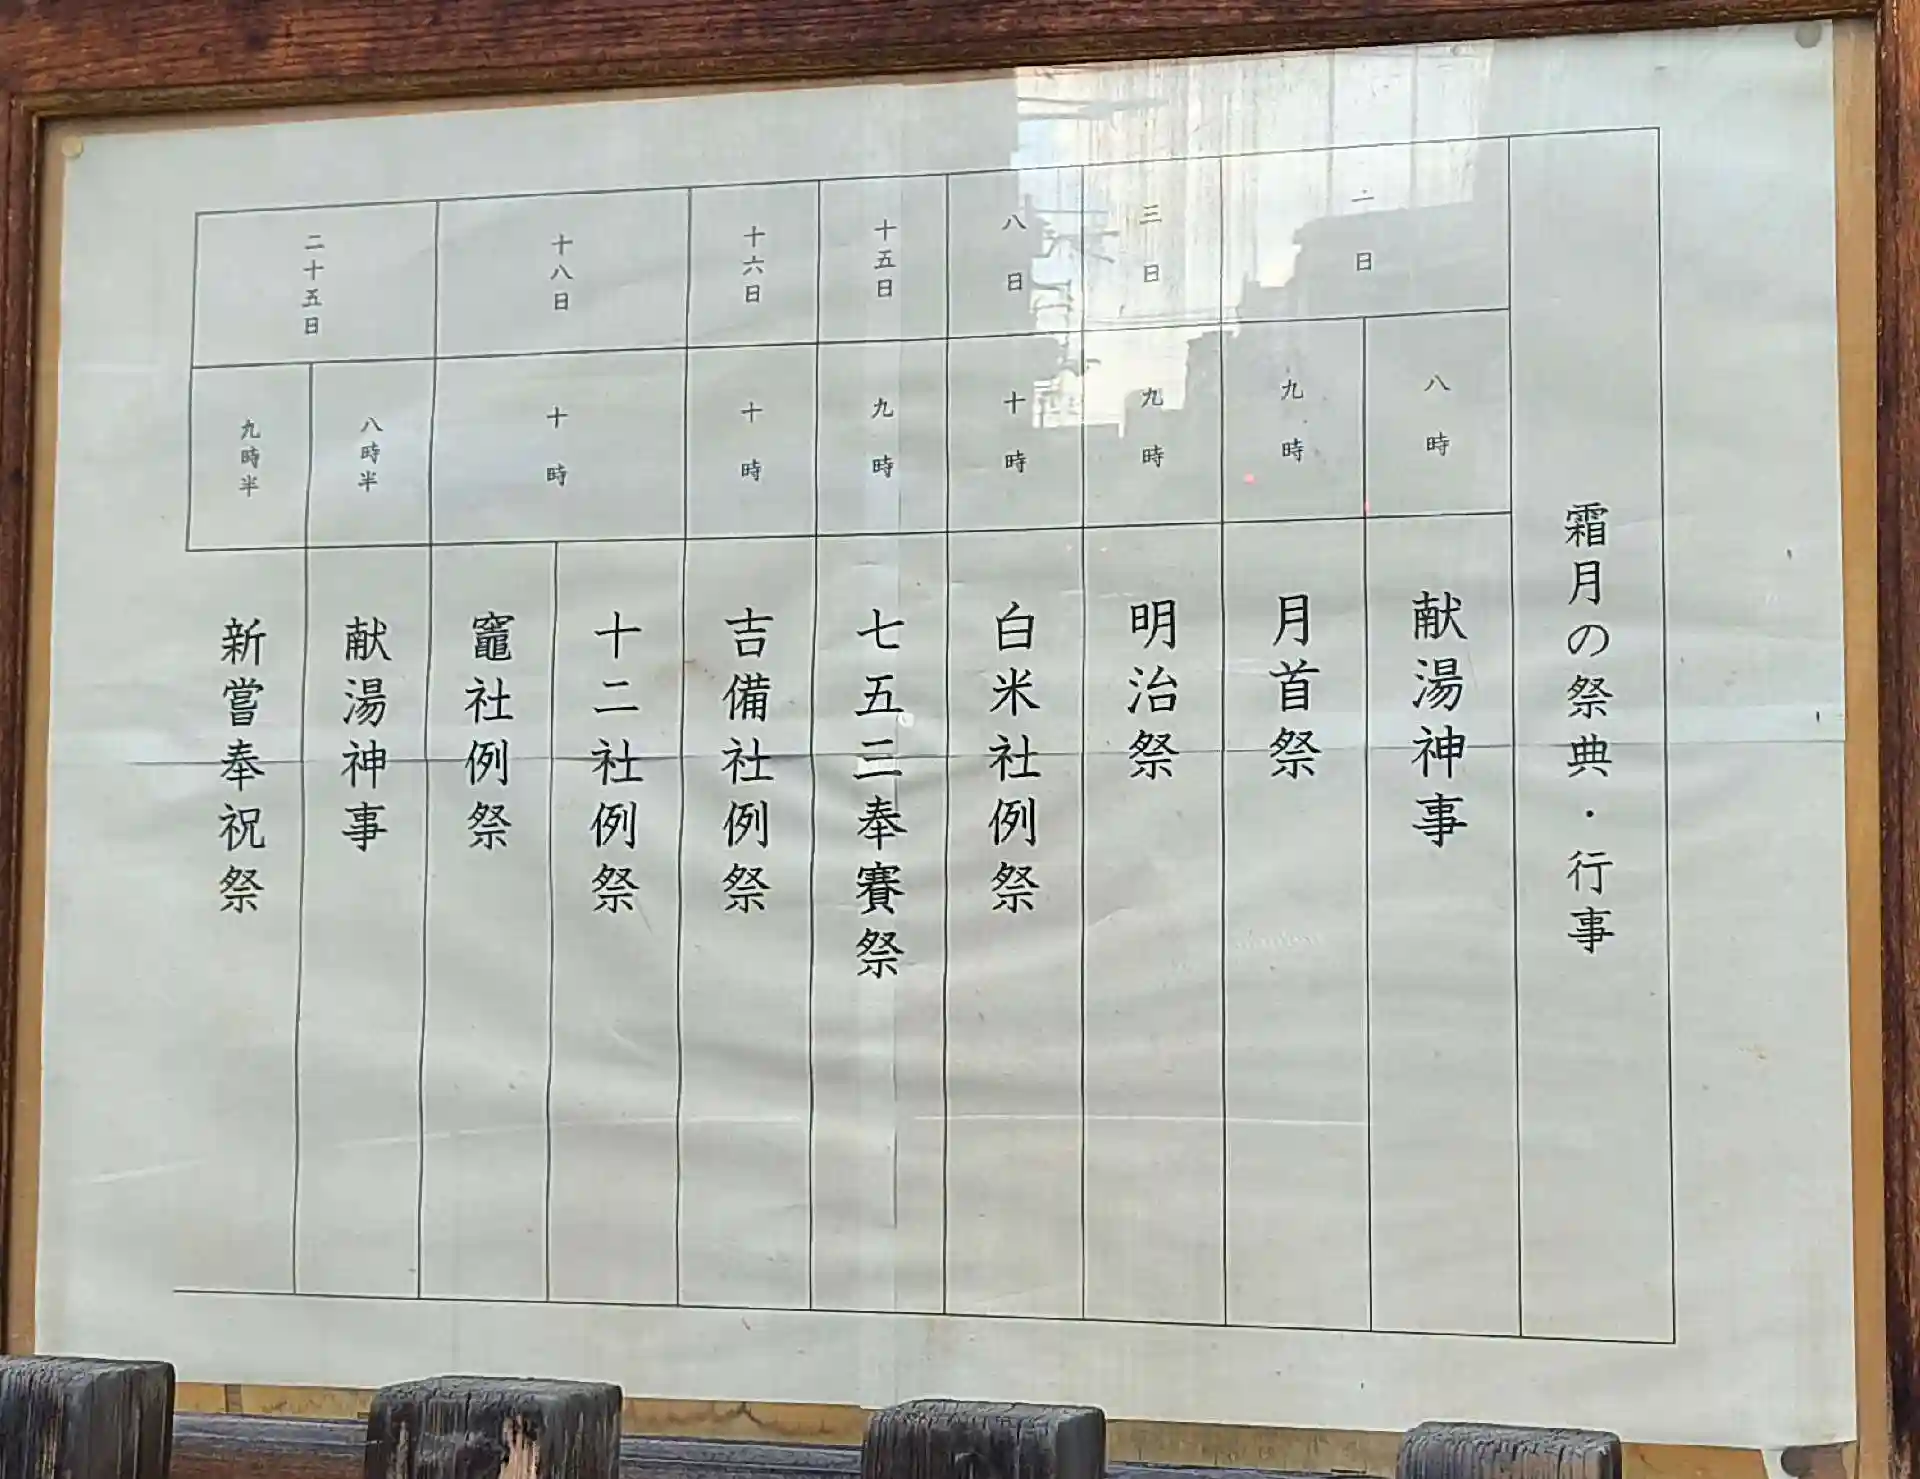 霜月の祭典・行事
一日
八時
献湯神事
九時
月首祭
三日
九時
明治祭
八日
十時
白米社例祭
十五日
九時
七五三奉賽祭
十六日
十時
吉備社例祭
十八日
十時
十二社例祭
竈社例祭
二十五日
八時半
献湯神事
九時半
新嘗奉祝祭